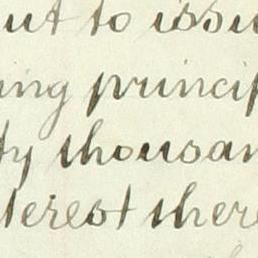 ut to issu
ing princip
ty thousan
terest there